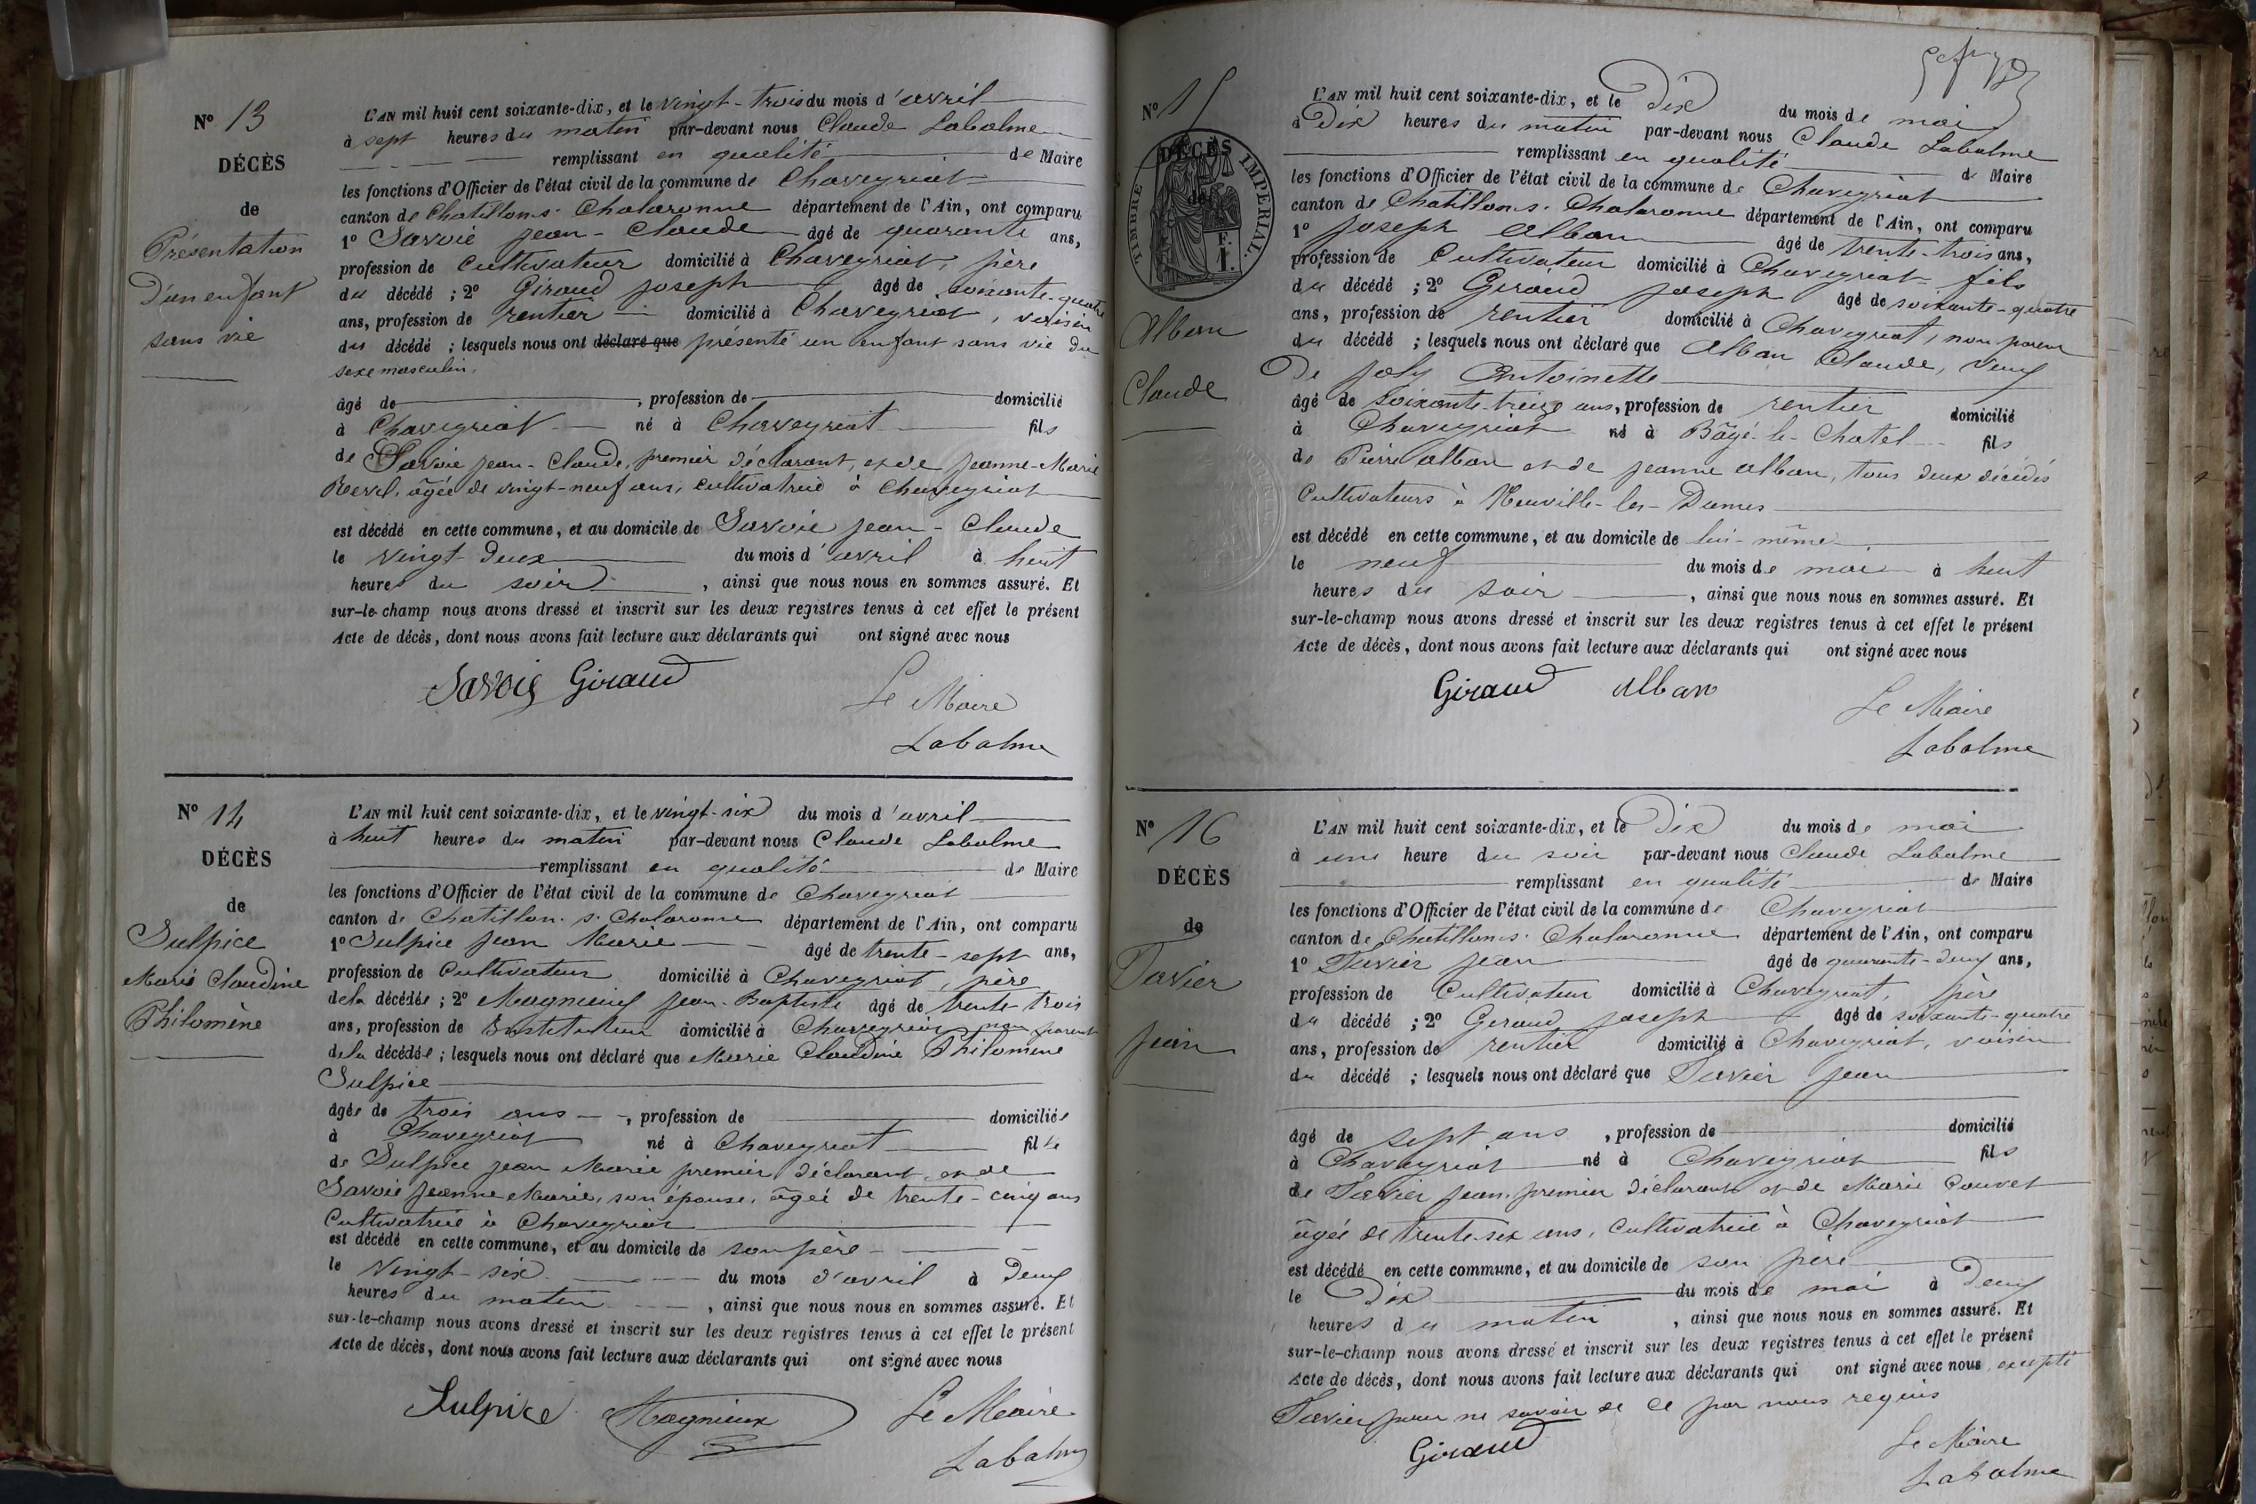 N° 13
DÉCÈS
de
Présentation
D'un enfant
sans vie
L'AN mil huit cent soixante-dix, et le vingt-trois du mois d'avril
à sept heures du matin par-devant nous Claude Labalme
remplissant en qualité de Maire
les fonctions d'Officier de l'état civil de la commune de Chaveyriat
canton de Chatillon s. Chalaronne département de l'Ain, ont comparu
1° Savoie Jean-Claude âgé de quarante ans,
profession de Cultivateur domicilié à Chaveyriat, père
du décédé ; 2° Giraud Joseph âgé de soixante-quatre
ans, profession de rentier domicilié à Chaveyriat, voisin
du décédé ; lesquels nous ont déclaré que présenté un enfant sans vie du
sexe masculin.
âgé de , profession de domicilié
à Chaveyriat né à Chaveyriat fils
de Savoie Jean-Claude, premier déclarant, et de Jeanne-Marie
Revel, âgée de vingt-neuf ans, cultivatrice à Chaveyriat
est décédé en cette commune, et au domicile de Savoie Jean-Claude
le vingt deux du mois d'avril à huit
heures du soir , ainsi que nous nous en sommes assuré. Et
sur-le-champ nous avons dressé et inscrit sur les deux registres tenus à cet effet le présent
Acte de décès, dont nous avons fait lecture aux déclarants qui ont signé avec nous
Savoie Giraud
Le Maire
Labalme
N° 14
DÉCÈS
de
Sulpice
Marie Claudine
Philomène
L'AN mil huit cent soixante-dix, et le vingt-six du mois d'avril
à huit heures du matin par-devant nous Claude Labalme
remplissant en qualité de Maire
les fonctions d'Officier de l'état civil de la commune de Chaveyriat
canton de Chatillon s. Chalaronne département de l'Ain, ont comparu
1° Sulpice Jean Marie âgé de trente-sept ans,
profession de Cultivateur domicilié à Chaveyriat, père
de la décédée ; 2° Magnieux Jean-Baptiste âgé de trente-trois
ans, profession de Instituteur domicilié à Chaveyriat non parent
de la décédée ; lesquels nous ont déclaré que Marie Claudine Philomène
Sulpice
âgée de trois ans , profession de domiciliée
à Chaveyriat né à Chaveyriat fille
de Sulpice Jean Marie premier déclarant et de
Savoie Jeanne Marie, son épouse, âgée de trente-cinq ans
Cultivatrice à Chaveyriat
est décédé en cette commune, et au domicile de son père
le Vingt-six du mois d'avril à Deux
heures du matin , ainsi que nous nous en sommes assuré. Et
sur-le-champ nous avons dressé et inscrit sur les deux registres tenus à cet effet le présent
Acte de décès, dont nous avons fait lecture aux déclarants qui ont signé avec nous
Sulpice Magnieux
Le Maire
Labalme
N° 15
DÉCÈS
de
TIMBRE IMPÉRIAL
F.
1.
Alban
Claude
L'AN mil huit cent soixante-dix, et le Dix du mois de mai
à Dix heures du matin par-devant nous Claude Labalme
remplissant en qualité de Maire
les fonctions d'Officier de l'état civil de la commune de Chaveyriat
canton de Chatillon s. Chalaronne département de l'Ain, ont comparu
1° Joseph Alban âgé de trente-trois ans,
profession de Cultivateur domicilié à Chaveyriat fils
du décédé ; 2° Giraud Joseph âgé de soixante-quatre
ans, profession de rentier domicilié à Chaveyriat, non parent
du décédé ; lesquels nous ont déclaré que Alban Claude, veuf
De Joly Antoinette
âgé de soixante-treize ans, profession de rentier domicilié
à Chaveyriat né à Bâgé-le-Chatel fils
de Pierre Alban et de Jeanne Alban, tous deux décédés
Cultivateurs à Neuville-les-Dames
est décédé en cette commune, et au domicile de lui-même
le neuf du mois de mai à huit
heures du soir , ainsi que nous nous en sommes assuré. Et
sur-le-champ nous avons dressé et inscrit sur les deux registres tenus à cet effet le présent
Acte de décès, dont nous avons fait lecture aux déclarants qui ont signé avec nous
Giraud Alban
Le Maire
Labalme
N° 16
DÉCÈS
de
Tavier
Jean
L'AN mil huit cent soixante-dix, et le Dix du mois de mai
à une heure du soir par-devant nous Claude Labalme
remplissant en qualité de Maire
les fonctions d'Officier de l'état civil de la commune de Chaveyriat
canton de Chatillon s. Chalaronne département de l'Ain, ont comparu
1° Tavier Jean âgé de quarante-deux ans,
profession de Cultivateur domicilié à Chaveyriat, père
du décédé ; 2° Geraud Joseph âgé de soixante-quatre
ans, profession de rentier domicilié à Chaveyriat, voisin
du décédé ; lesquels nous ont déclaré que Tavier Jean
âgé de sept ans , profession de domicilié
à Chaveyriat né à Chaveyriat fils
de Tavier Jean, premier déclarant et de Marie Couvet
âgée de trente-six ans, Cultivatrice à Chaveyriat
est décédé en cette commune, et au domicile de son père
le Dix du mois de mai à Deux
heures du matin , ainsi que nous nous en sommes assuré. Et
sur-le-champ nous avons dressé et inscrit sur les deux registres tenus à cet effet le présent
Acte de décès, dont nous avons fait lecture aux déclarants qui ont signé avec nous excepté
Tavier pour ne savoir de ce par nous requis
Giraud
Le Maire
Labalme